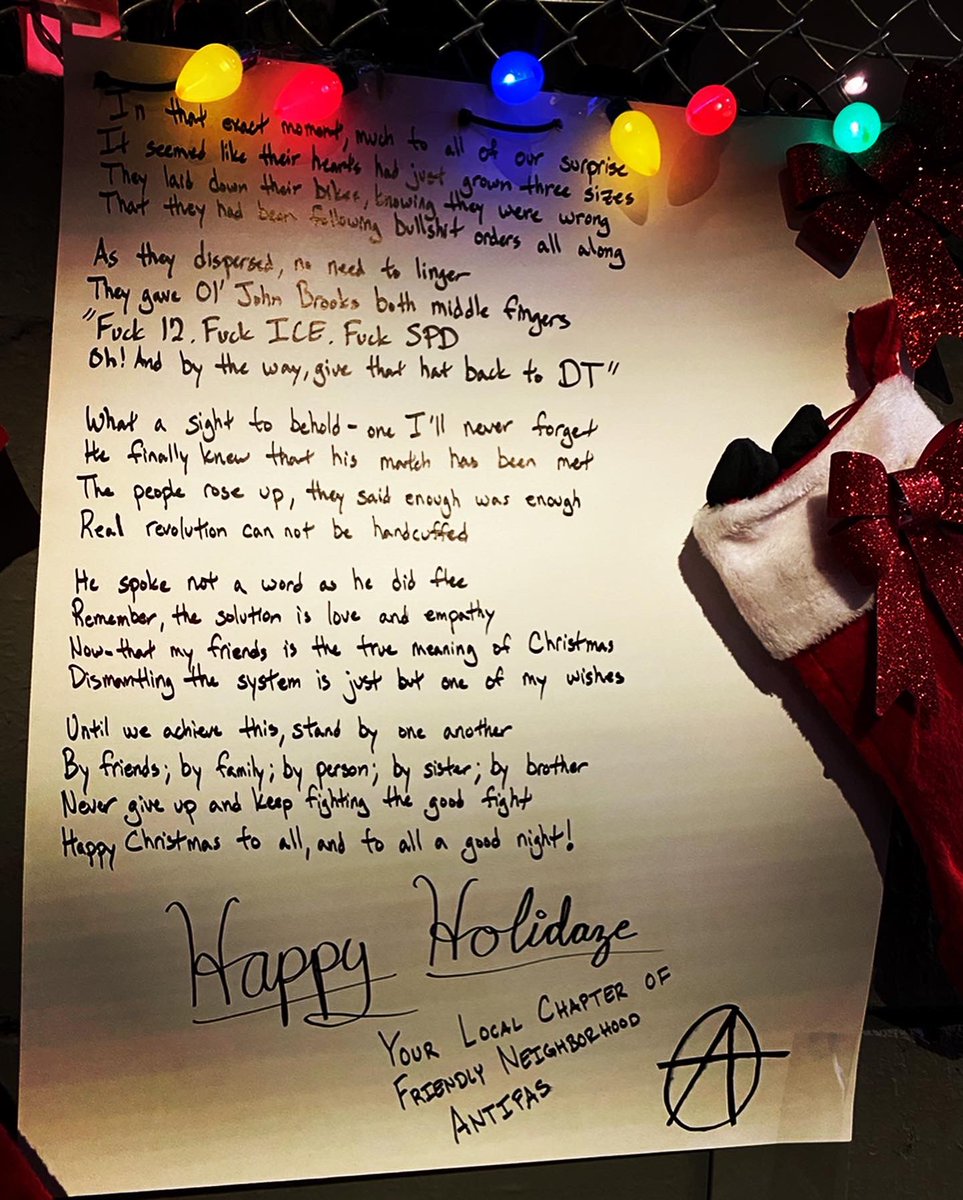 In that exact moment, much to all of our surprise
It seemed like their hearts had just grown three sizes
They laid down their bikes, knowing they were wrong
That they had been following bullshit orders all along
As they dispersed, no need to linger
They gave Ol' John Brooks both middle fingers
"Fuck 12. Fuck ICE. Fuck SPD
Oh! And by the way, give that hat back to DT"
What a sight to behold - one I'll never forget
He finally knew that his match has been met
The people rose up, they said enough was enough
Real revolution can not be handcuffed
He spoke not a word as he did flee
Remember, the solution is love and empathy
Now-that my friends is the true meaning of Christmas
Dismantling the system is just but one of my wishes
Until we achieve this, stand by one another
By friends; by family; by person; by sister; by brother
Never give up and keep fighting the good fight
Happy Christmas to all, and to all a good night!
Happy Holidaze
YOUR LOCAL CHAPTER OF
FRIENDLY NEIGHBORHOOD
ANTIFAS